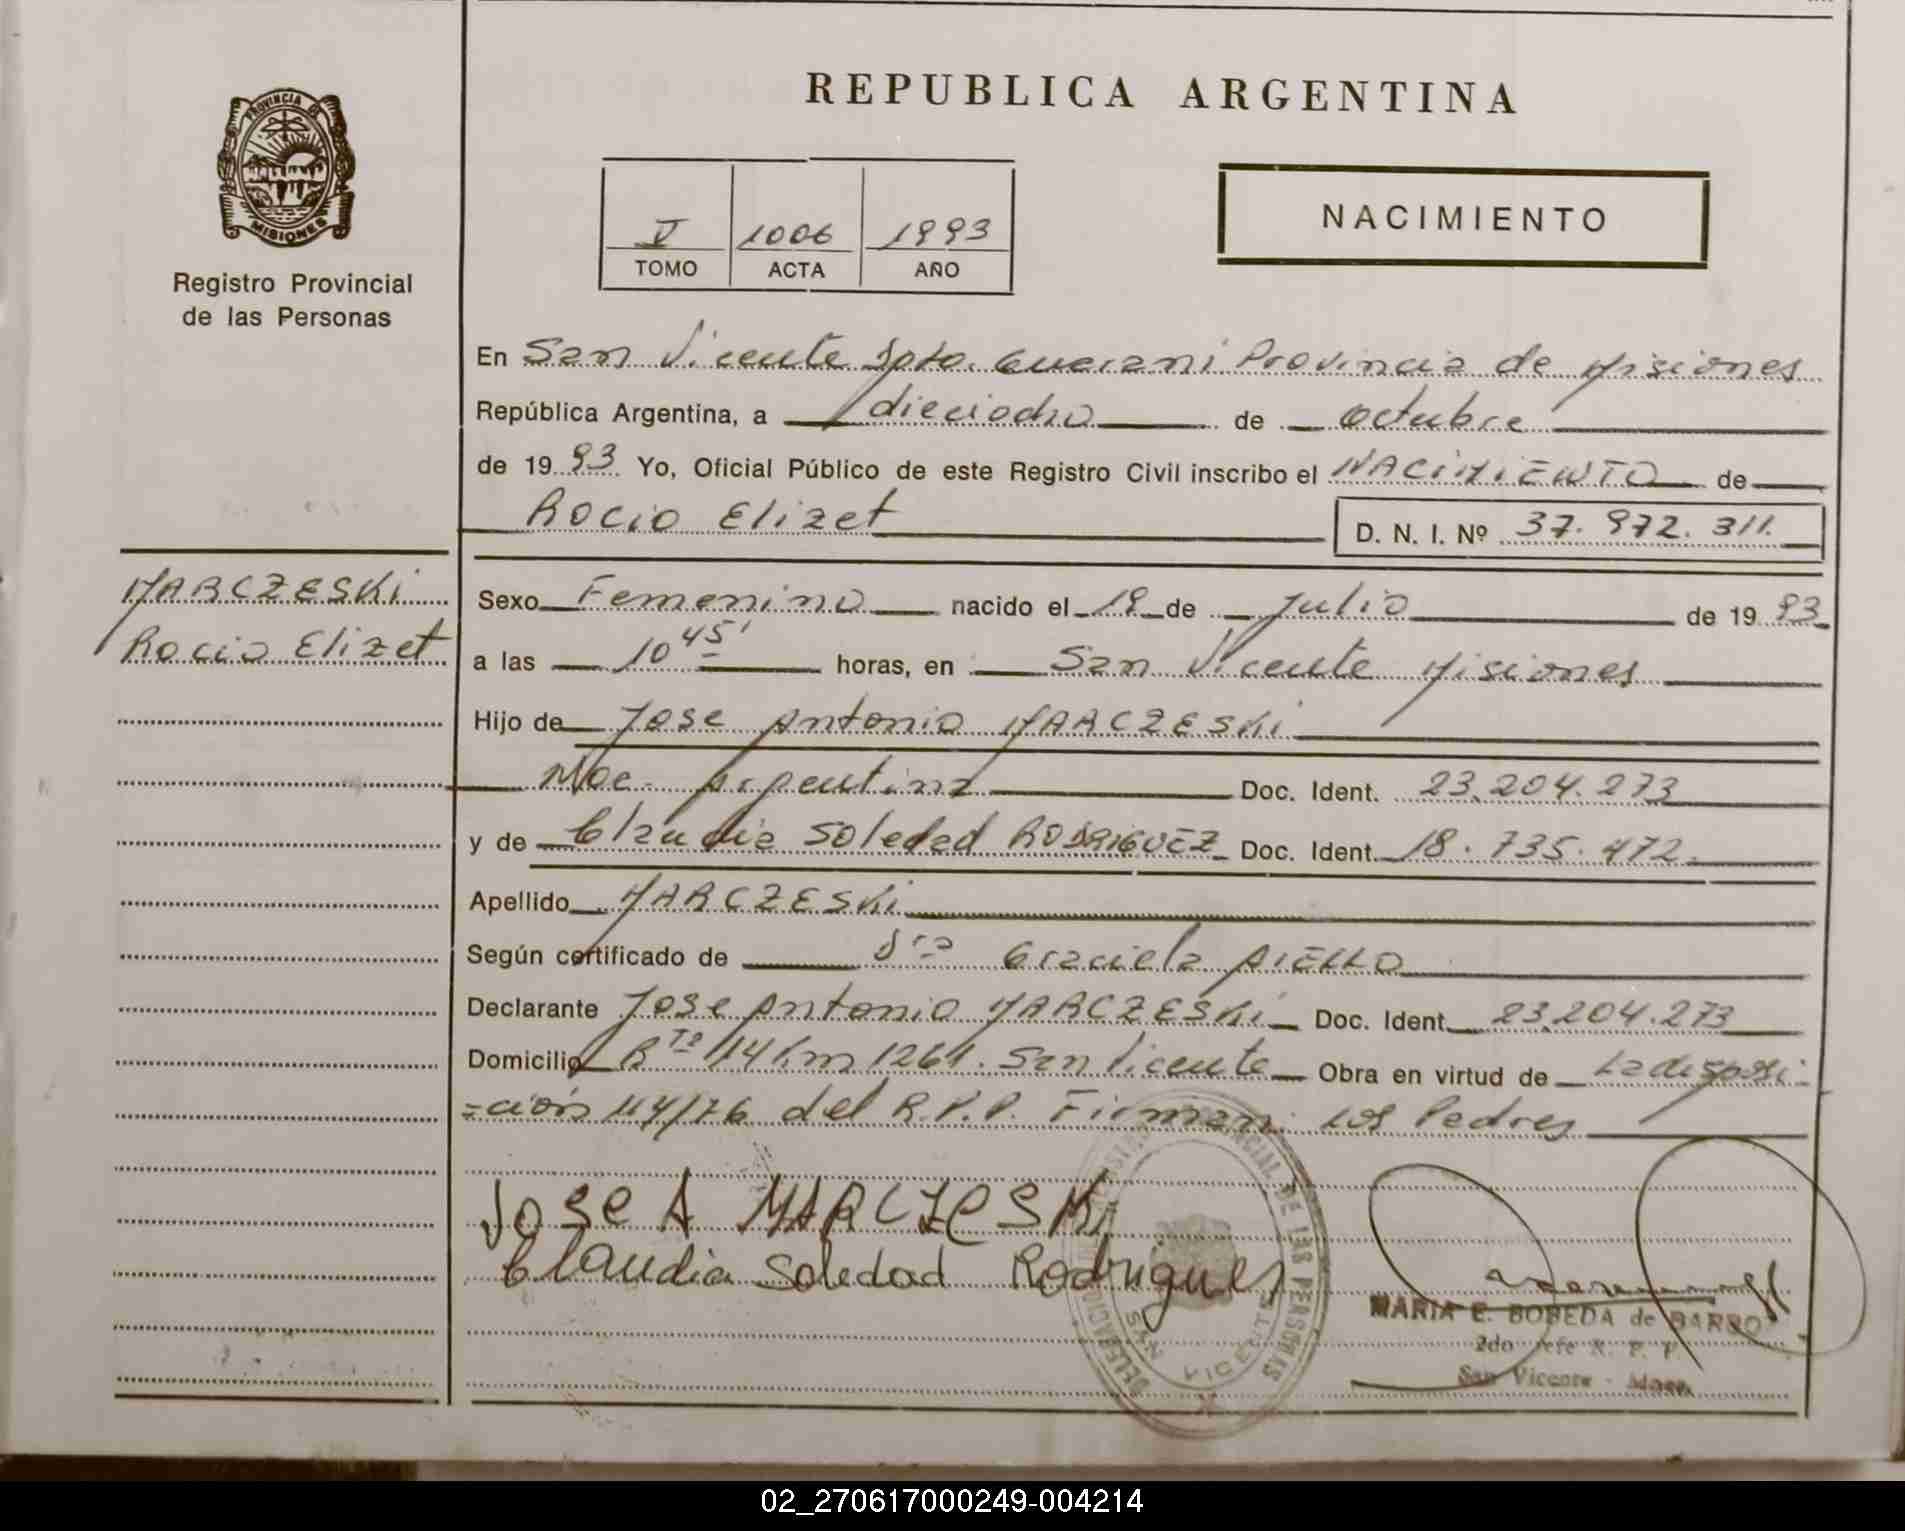 REPUBLICA ARGENTINA
PROVINCIA DE
MISIONES
Registro Provincial
de las Personas
V 1006 1993
TOMO ACTA AÑO
NACIMIENTO
En San Vicente Dpto. Guarani Provincia de Misiones
República Argentina, a dieciocho de octubre
de 1993 Yo, Oficial Público de este Registro Civil inscribo el NACIMIENTO de
Rocio Elizet D. N. I. Nº 37.972.311.
MARCZESKi
Rocio Elizet
Sexo Femenino nacido el 19 de Julio de 1993
a las 10 45' horas, en San Vicente Misiones
Hijo de Jose Antonio MARCZESKi
Nac. Argentina Doc. Ident. 23.204.273
y de Claudia Soledad RODRIGUEZ Doc. Ident. 18.735.472.
Apellido MARCZESKi
Según certificado de Dra Graciela AIELLO
Declarante Jose Antonio MARCZESKi Doc. Ident. 23.204.273
Domicilio Rta 14 Km 1261. San Vicente Obra en virtud de La disposi-
=ción 114/76 del R.P.P. Firman: los Padres
Jose A MARCZESKi
Claudia Soledad Rodrigues
DELEGACION PROVINCIAL DE LAS PERSONAS
SAN VICENTE
MARIA E. BOBEDA de BARRO
2do Jefe R. P. P.
San Vicente - Mnes.
02_270617000249-004214